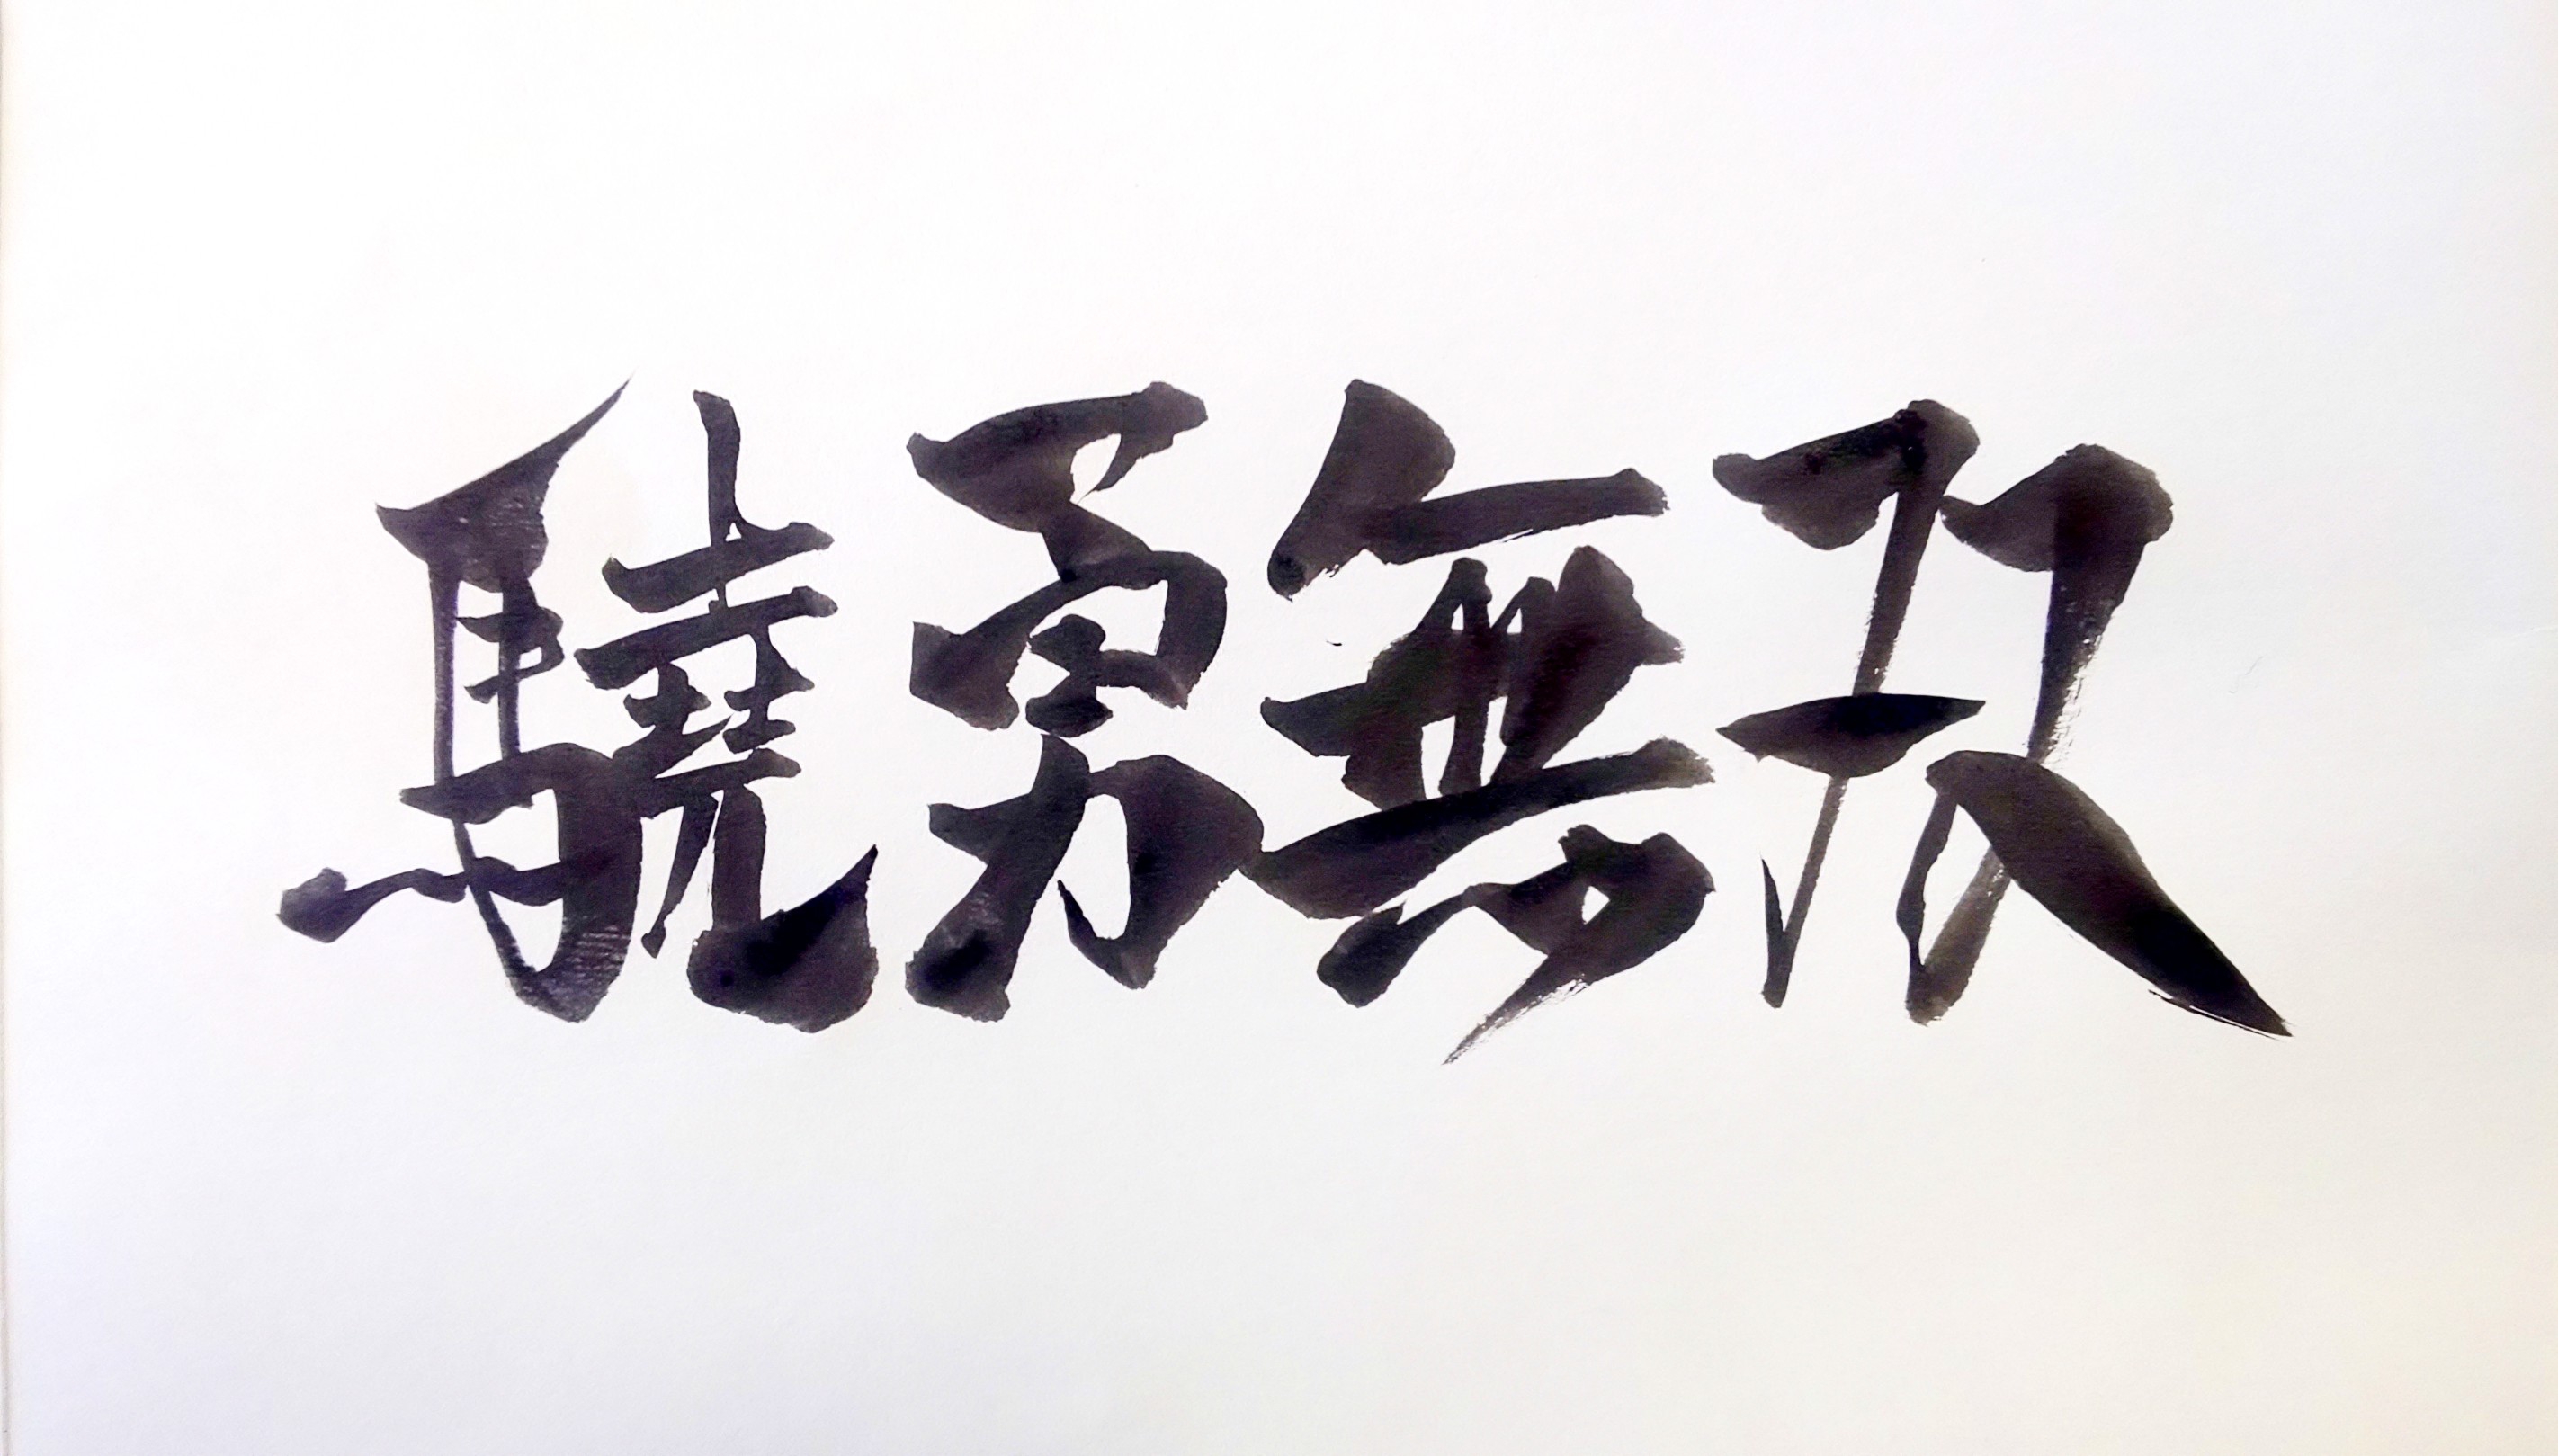 驍勇無双